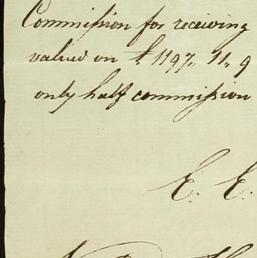 Commission for receiving
valued on £1197. 11. 9
only half commission
E. E.